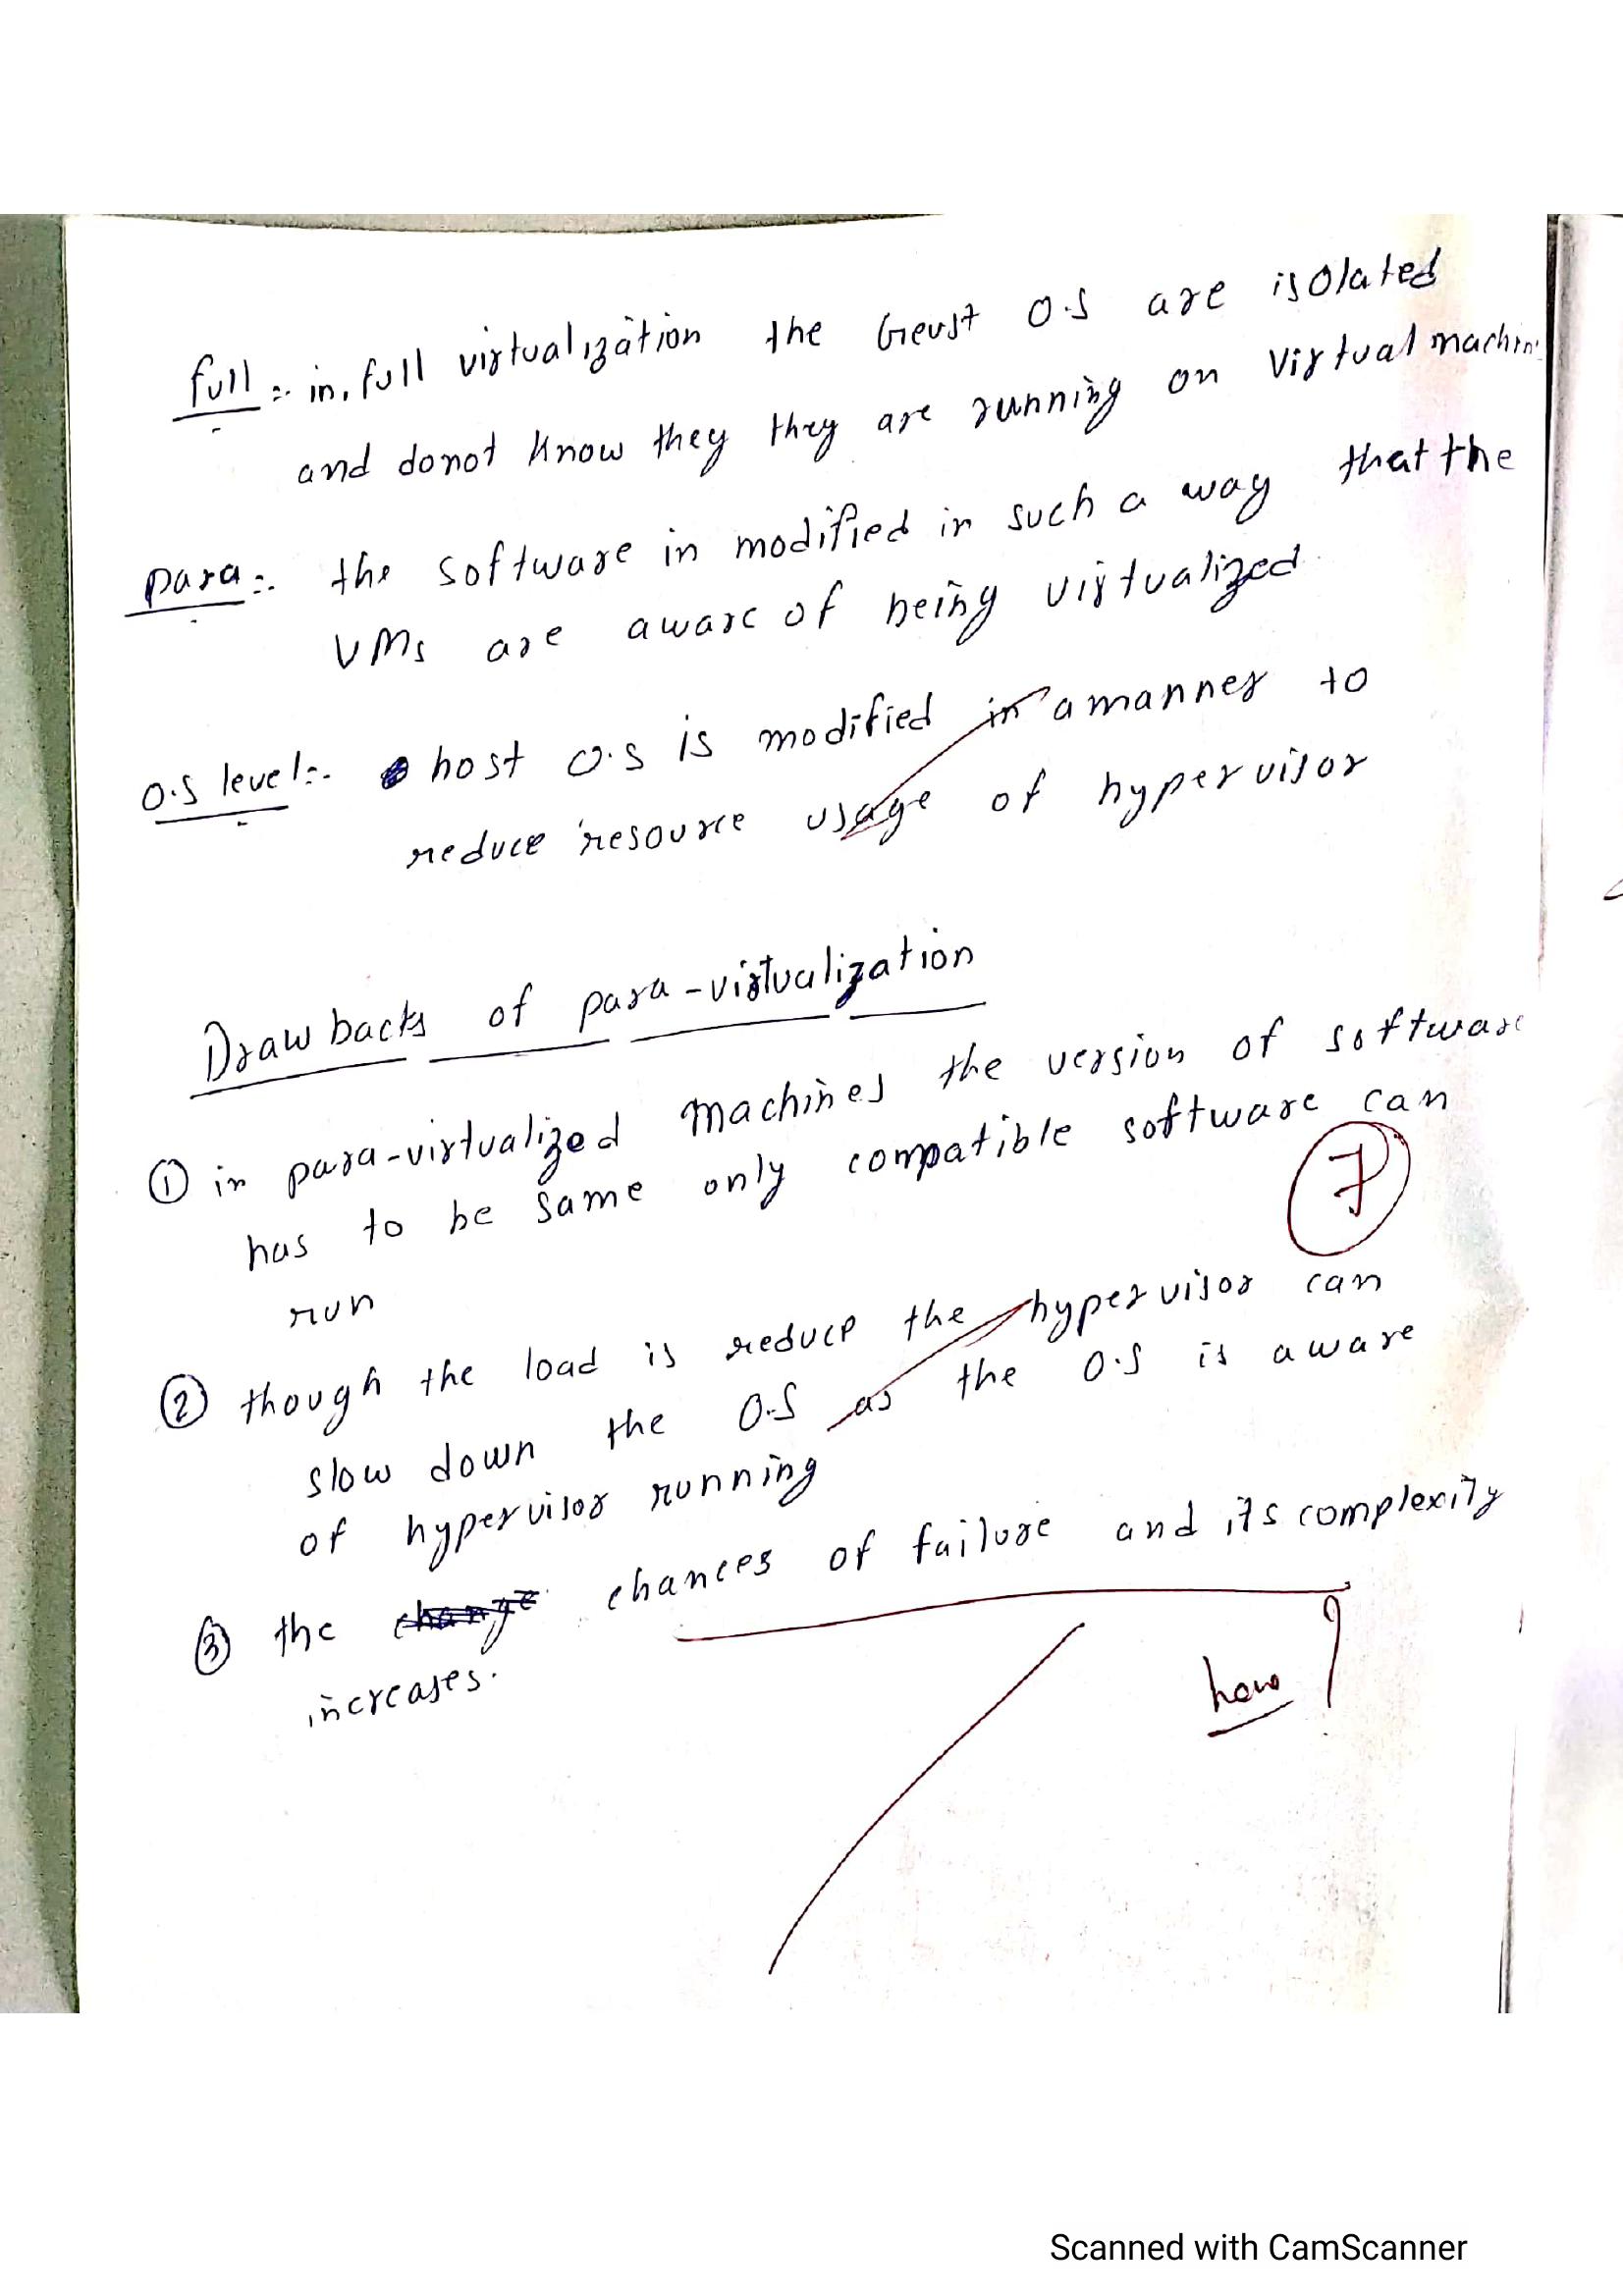 full :- in, full virtualization the Geust O.S are isolated
and donot know they they are running on Virtual machin
para :- the software in modified in such a way that the
VMs are aware of being virtualized
O.S level :- host O.S is modified in a manner to
reduce resource usage of hypervisor
Drawbacks of para-virtualization
① in para-virtualized machines the version of software
has to be same only compatible software can
7
run
② though the load is reduce the hypervisor can
slow down the O.S as the O.S is aware
of hypervisor running
③ the change chances of failure and its complexity
increases.
how ?
Scanned with CamScanner